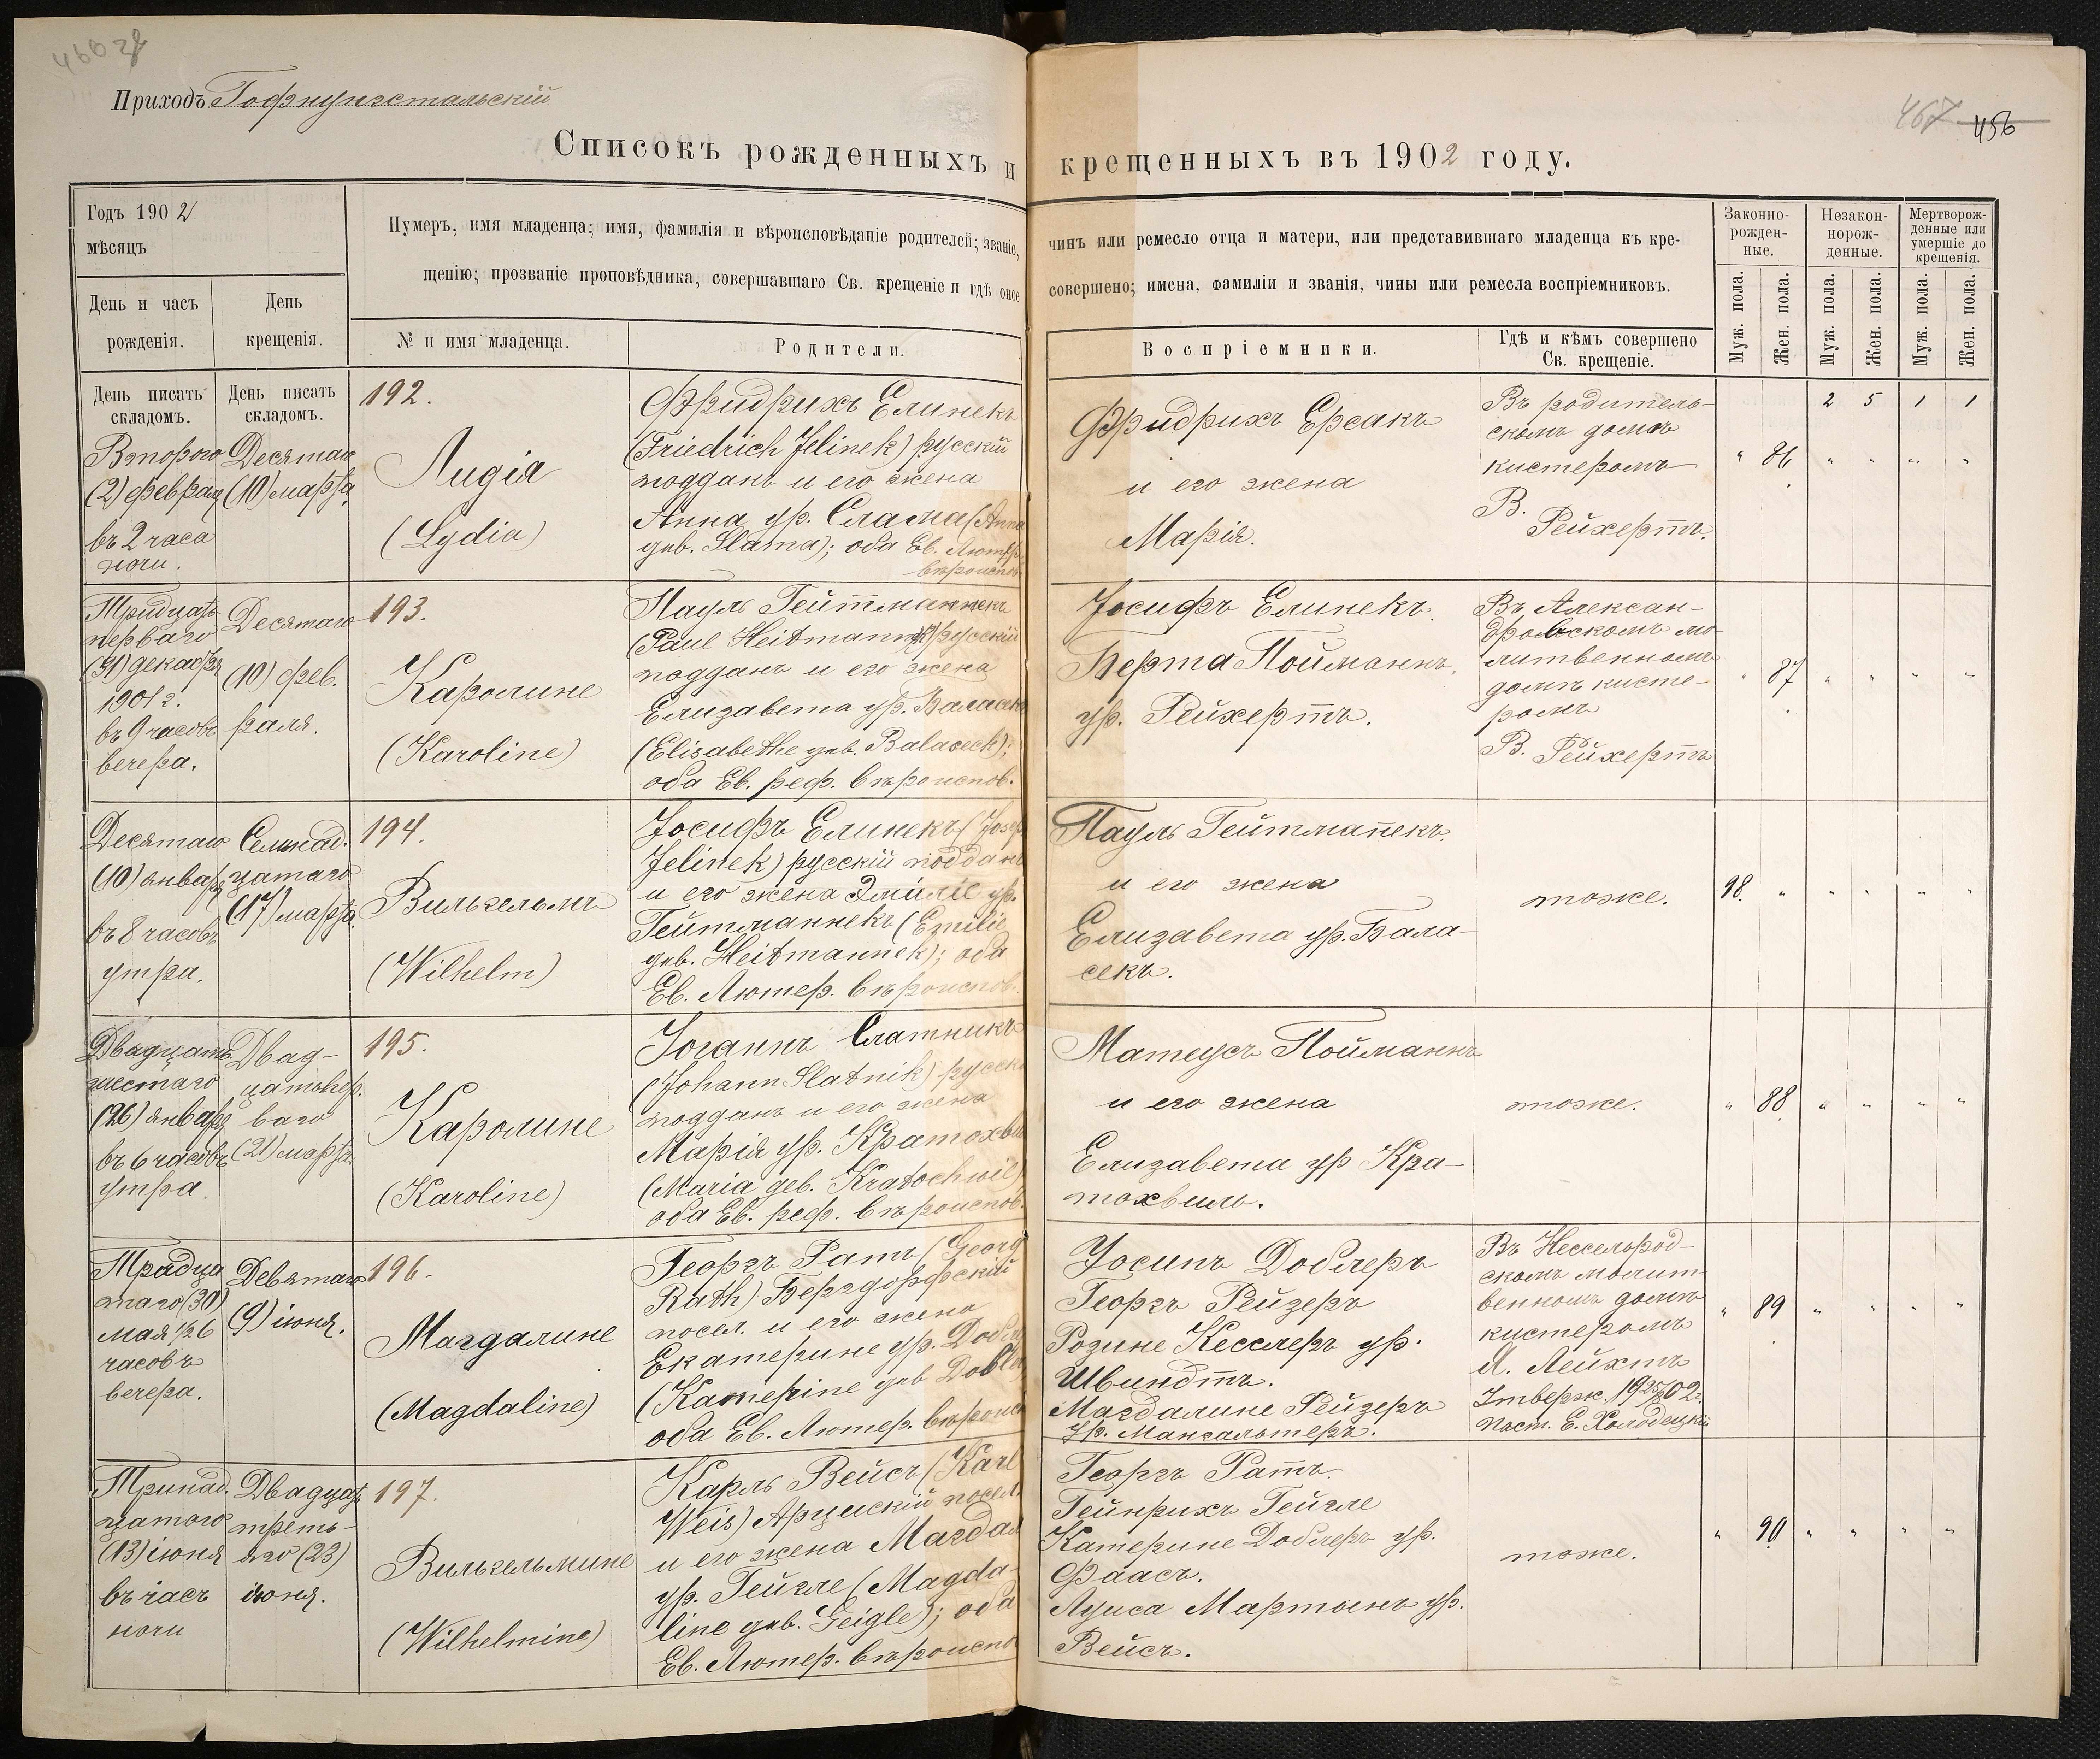 Приходъ Гофнунгстальскій
467 456
Списокъ рожденныхъ и крещенныхъ въ 1902 году.
Годъ 1902
мѣсяцъ
День и часъ
рожденія.
День
крещенія.
Нумеръ, имя младенца; имя, фамилія и вѣроисповѣданіе родителей; званіе,
щенію; прозваніе проповѣдника, совершавшаго Св. крещеніе и гдѣ оное
№ и имя младенца.
Родители.
чинъ или ремесло отца и матери, или представившаго младенца къ кре-
совершено; имена, фамиліи и званія, чины или ремесла воспріемниковъ.
Воспріемники.
Гдѣ и кѣмъ совершено
Св. крещеніе.
Законно-
рожден-
ные.
Незакон-
норож-
денные.
Мертворож-
денные или
умершіе до
крещенія.
Муж. пола.
Жен. пола.
Муж. пола.
Жен. пола.
Муж. пола.
Жен. пола.
День писать
складомъ.
Второго
(2) февраля
въ 2 часа
ночи.
День писать
складомъ.
Десятаго
(10) марта.
192.
Лидія
(Lydia)
Фридрихъ Елинекъ
(Friedrich Jelinek) русскій
поддан. и его жена
Анна ур. Слама (Anna
геb. Slama); оба Ев. Лютер.
вѣроиспов.
Фридрихъ Ерсакъ
и его жена
Марія.
Въ родитель-
скомъ домѣ
кистеромъ
В.
Рейхертъ.
2 5 1 1
" 86 " " " "
Тридцать
перваго
(31) декабря
1901 г.
въ 9 часовъ
вечера.
Десятаго
(10) фев.
раля.
193.
Каролине
(Karoline)
Пауль Гейтманнекъ
(Paul Heitmannek) русскій
поддан. и его жена
Елизавета ур. Баласекъ
(Elisabethe геb. Balaceck);
оба Ев. реф. вѣроиспов.
Іосифъ Елинекъ.
Берта Пойманнъ,
ур. Рейхертъ.
Въ Алексан-
дровскомъ мо-
литвенномъ
домѣ кисте-
ромъ
В. Рейхертъ
" 87 " " " "
Десятаго
(10) января
въ 8 часовъ
утра.
Семнад.
цатаго
(17) марта.
194.
Вильгельмъ
(Wilhelm)
Іосифъ Елинекъ (Josef
Jelinek) русскій поддан.
и его жена Эмиліе ур.
Гейтманнекъ (Emilie
геb. Heitmannek); оба
Ев. Лютер. вѣроиспов.
Пауль Гейтманекъ.
и его жена
Елизавета ур. Бала-
секъ.
тоже.
98. " " " " "
Двадцать
шестаго
(26) января
въ 6 часовъ
утра.
Двад-
цать пер.
ваго
(21) марта.
195.
Каролине
(Karoline)
Іоганнъ Слатникъ
(Johann Slatnik) русскій
поддан. и его жена
Марія ур. Кратохвиль
(Maria geb. Kratochwil)
оба Ев. реф. вѣроиспов.
Матеусъ Пойманнъ
и его жена
Елизавета ур Кра-
тохвиль.
тоже.
" 88 " " " "
Тридца
таго (30)
мая 1/2 6
часовъ
вечера.
Девятаго
(9) іюня.
196.
Магдалине
(Magdaline)
Георгъ Ратъ (Georg
Rath) Бергдорфскій
посел. и его жена
Екатерине ур. Доблеръ
оба Ев. Лютер. вѣроисп
Іосипъ Доблеръ
Георгъ Рейзеръ
Розине Кесслеръ ур.
Швиндтъ.
Магдалине Рейзеръ
ур. Мангальтеръ.
Въ Нессельрод-
скомъ молит-
венномъ домѣ
кистеромъ
А. Лейхтъ
Паст. Е. Холодецкій
" 89 " " " "
Тринад.
цатаго
(13) іюня
въ 1 часъ
ночи
Двадцать
треть-
яго (23)
іюня.
197.
Вильгельмине
(Wilhelmine)
Карлъ Вейсъ (Karl
Weis) Арцискій посел.
и его жена Магдал
ур. Гейгле (Magda-
line геb. Geigle); оба
Ев. Лютер. вѣроиспо
Георгъ Ратъ.
Гейнрихъ Гейгле
Катерине Доблеръ ур.
Фаасъ.
Луиса Мартынъ ур.
Вейсъ.
тоже.
" 90 " " " "